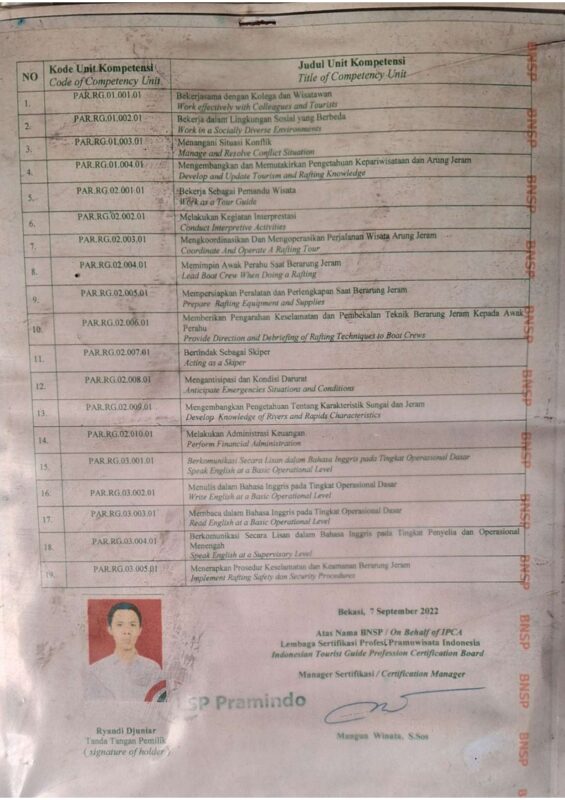 NO
Kode Unit Kompetensi
Code of Competency Unit
Judul Unit Kompetensi
Title of Competency Unit
1.
PAR.RG.01.001.01
Bekerjasama dengan Kolega dan Wisatawan
Work effectively with Colleagues and Tourists
2.
PAR.RG.01.002.01
Bekerja dalam Lingkungan Sosial yang Berbeda
Work in a Socially Diverse Environments
3.
PAR.RG.01.003.01
Menangani Situasi Konflik
Manage and Resolve Conflict Situation
4.
PAR.RG.01.004.01
Mengembangkan dan Memutakirkan Pengetahuan Kepariwisataan dan Arung Jeram
Develop and Update Tourism and Rafting Knowledge
5.
PAR.RG.02.001.01
Bekerja Sebagai Pemandu Wisata
Work as a Tour Guide
6.
PAR.RG.02.002.01
Melakukan Kegiatan Interprestasi
Conduct Interpretive Activities
7.
PAR.RG.02.003.01
Mengkoordinasikan Dan Mengoperasikan Perjalanan Wisata Arung Jeram
Coordinate And Operate A Rafting Tour
8.
PAR.RG.02.004.01
Memimpin Awak Perahu Saat Berarung Jeram
Lead Boat Crew When Doing a Rafting
9.
PAR.RG.02.005.01
Mempersiapkan Peralatan dan Perlengkapan Saat Berarung Jeram
Prepare Rafting Equipment and Supplies
10.
PAR.RG.02.006.01
Memberikan Pengarahan Keselamatan dan Pembekalan Teknik Berarung Jeram Kepada Awak
Perahu
Provide Direction and Debriefing of Rafting Techniques to Boat Crews
11.
PAR.RG.02.007.01
Bertindak Sebagai Skiper
Acting as a Skiper
12.
PAR.RG.02.008.01
Mengantisipasi dan Kondisi Darurat
Anticipate Emergencies Situations and Conditions
13.
PAR.RG.02.009.01
Mengembangkan Pengetahuan Tentang Karakteristik Sungai dan Jeram
Develop Knowledge of Rivers and Rapids Characteristics
14.
PAR.RG.02.010.01
Melakukan Administrasi Keuangan
Perform Financial Administration
15.
PAR.RG.03.001.01
Berkomunikasi Secara Lisan dalam Bahasa Inggris pada Tingkat Operasional Dasar
Speak English at a Basic Operational Level
16.
PAR.RG.03.002.01
Menulis dalam Bahasa Inggris pada Tingkat Operasional Dasar
Write English at a Basic Operational Level
17.
PAR.RG.03.003.01
Membaca dalam Bahasa Inggris pada Tingkat Operasional Dasar
Read English at a Basic Operational Level
18.
PAR.RG.03.004.01
Berkomunikasi Secara Lisan dalam Bahasa Inggris pada Tingkat Penyelia dan Operasional
Menengah
Speak English at a Supervisory Level
19.
PAR.RG.03.005.01
Menerapkan Prosedur Keselamatan dan Keamanan Berarung Jeram
Implement Rafting Safety dan Security Procedures
Bekasi, 7 September 2022
Atas Nama BNSP / On Behalf of IPCA
Lembaga Sertifikasi Profesi Pramuwisata Indonesia
Indonesian Tourist Guide Profession Certification Board
Manager Sertifikasi / Certification Manager
LSP Pramindo
Ryandi Djuniar
Tanda Tangan Pemilik
( signature of holder )
Mangun Winata, S.Sos
BNSP
BNSP
BNSP
BNSP
BNSP
BNSP
BNSP
BNSP
BNSP
BNSP
BNSP